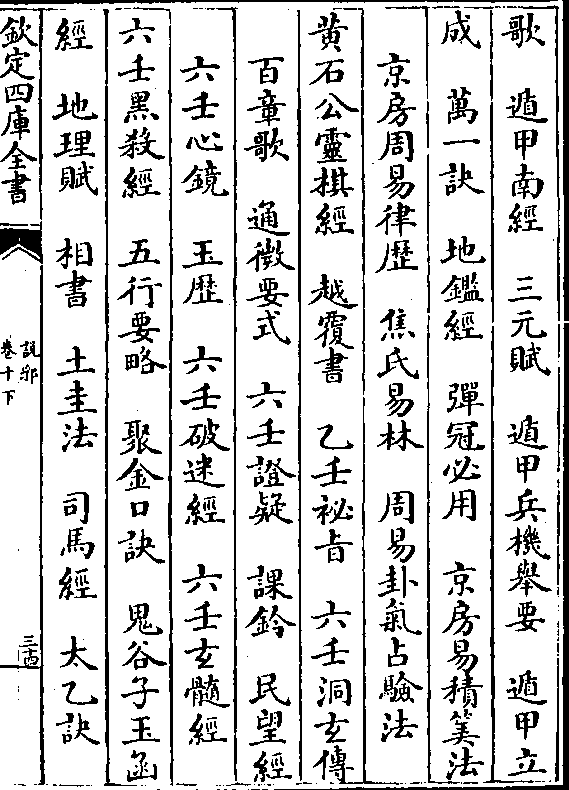 歌　遁甲南經　三元賦　遁甲兵機舉要　遁甲立
成　萬一訣　地鑑經　彈冠必用　京房易積筭法
京房周易律歴　焦氏易林　周易卦氣占驗法
黄石公靈棋經　越覆書　乙壬祕㫖　六壬洞玄傳
百章歌　通徴要式　六壬證疑　課鈐　民望經
六壬心鏡　玉歴　六壬破迷經　六壬玄髓經
六壬黑殺經　五行要略　聚金口訣　鬼谷子玉函
經　地理賦　相書　土圭法　司馬經　太乙訣
欽定四庫全書
說郛
卷十下
三十四